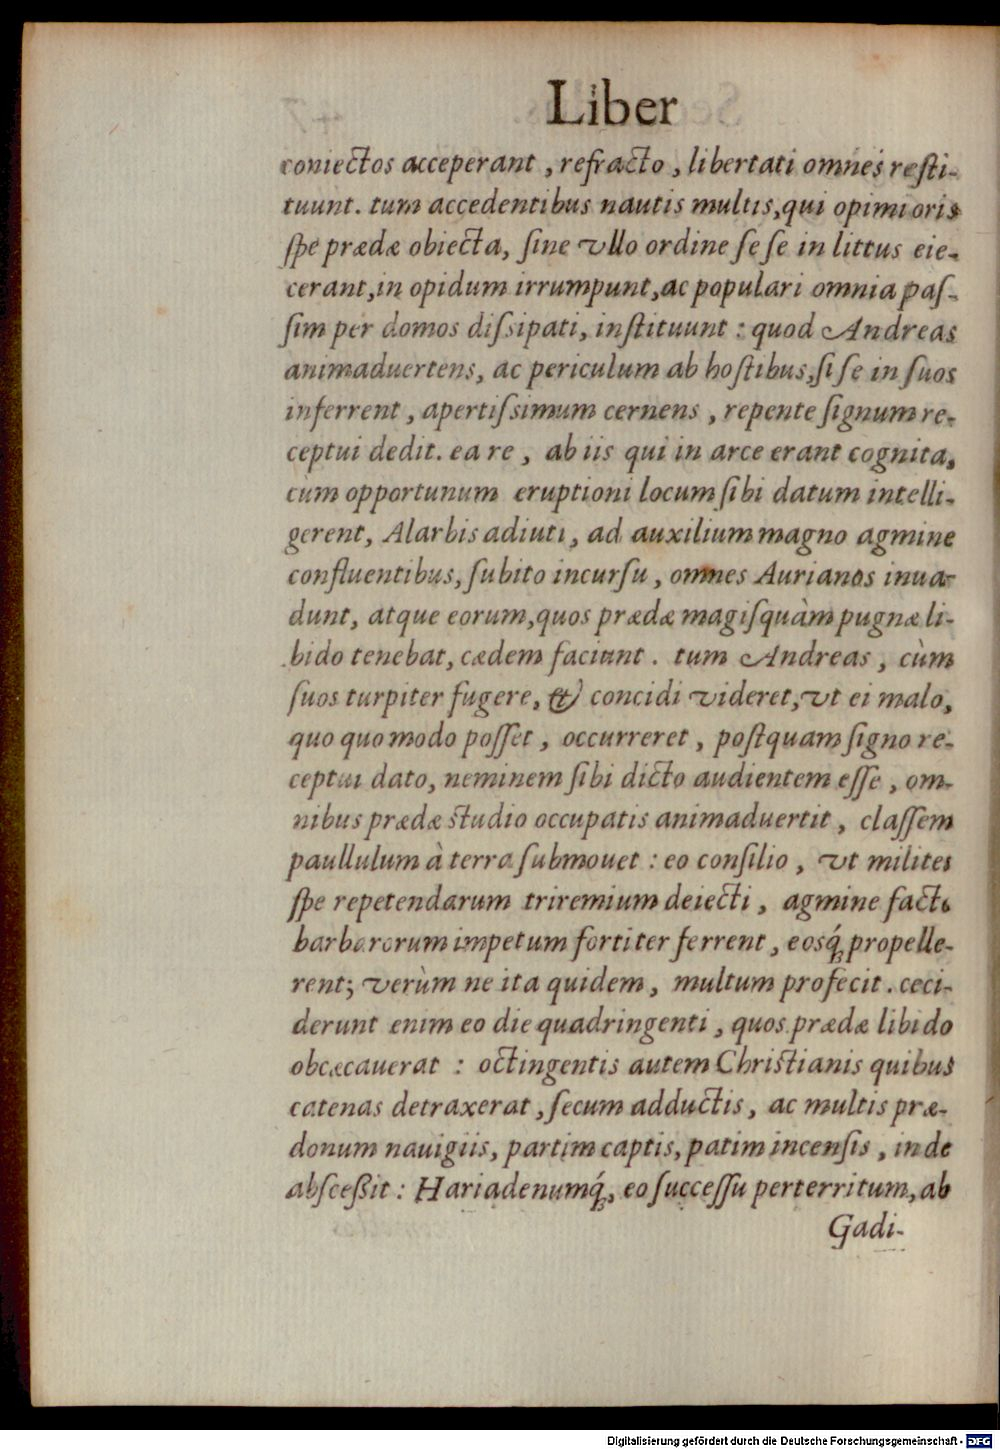 Liber
coniectos acceperant, refracto, libertati omnes resti-
tuunt. tum accedentibus nautis multis, qui opimioris
ſpe prædæ obiecta, ſine vllo ordine ſe ſe in littus eie-
cerant, in opidum irrumpunt, ac populari omnia paſ-
ſim per domos diſsipati, inſtituunt: quod Andreas
animaduertens, ac periculum ab hoſtibus, ſi ſe in ſuos
inferrent, apertiſsimum cernens, repente ſignum re-
ceptui dedit. ea re, ab iis qui in arce erant cognita,
cùm opportunum eruptioni locum ſibi datum intelli-
gerent, Alarbis adiuti, ad auxilium magno agmine
confluentibus, ſubito incurſu, omnes Aurianos inua-
dunt, atque eorum, quos prædæ magiſquàm pugnæ li-
bido tenebat, cædem faciunt. tum Andreas, cùm
ſuos turpiter fugere, & concidi videret, vt ei malo,
quo quomodo poſſet, occurreret, poſtquam ſigno re-
ceptui dato, neminem ſibi dicto audientem eſſe, om-
nibus prædæ ſtudio occupatis animaduertit, claſſem
paullulum à terra ſubmouet: eo conſilio, vt milites
ſpe repetendarum triremium deiecti, agmine facto
barbarorum impetum fortiter ferrent, eosq́; propelle-
rent; verùm ne ita quidem, multum profecit. ceci-
derunt enim eo die quadringenti, quos prædæ libido
obcæcauerat: octingentis autem Chriſtianis quibus
catenas detraxerat, ſecum adductis, ac multis præ-
donum nauigiis, partim captis, patim incenſis, inde
abſceßit: Hariadenumq́;, eo ſucceſſu perterritum, ab
Gadi-
Digitalisierung gefördert durch die Deutsche Forschungsgemeinschaft - DFG